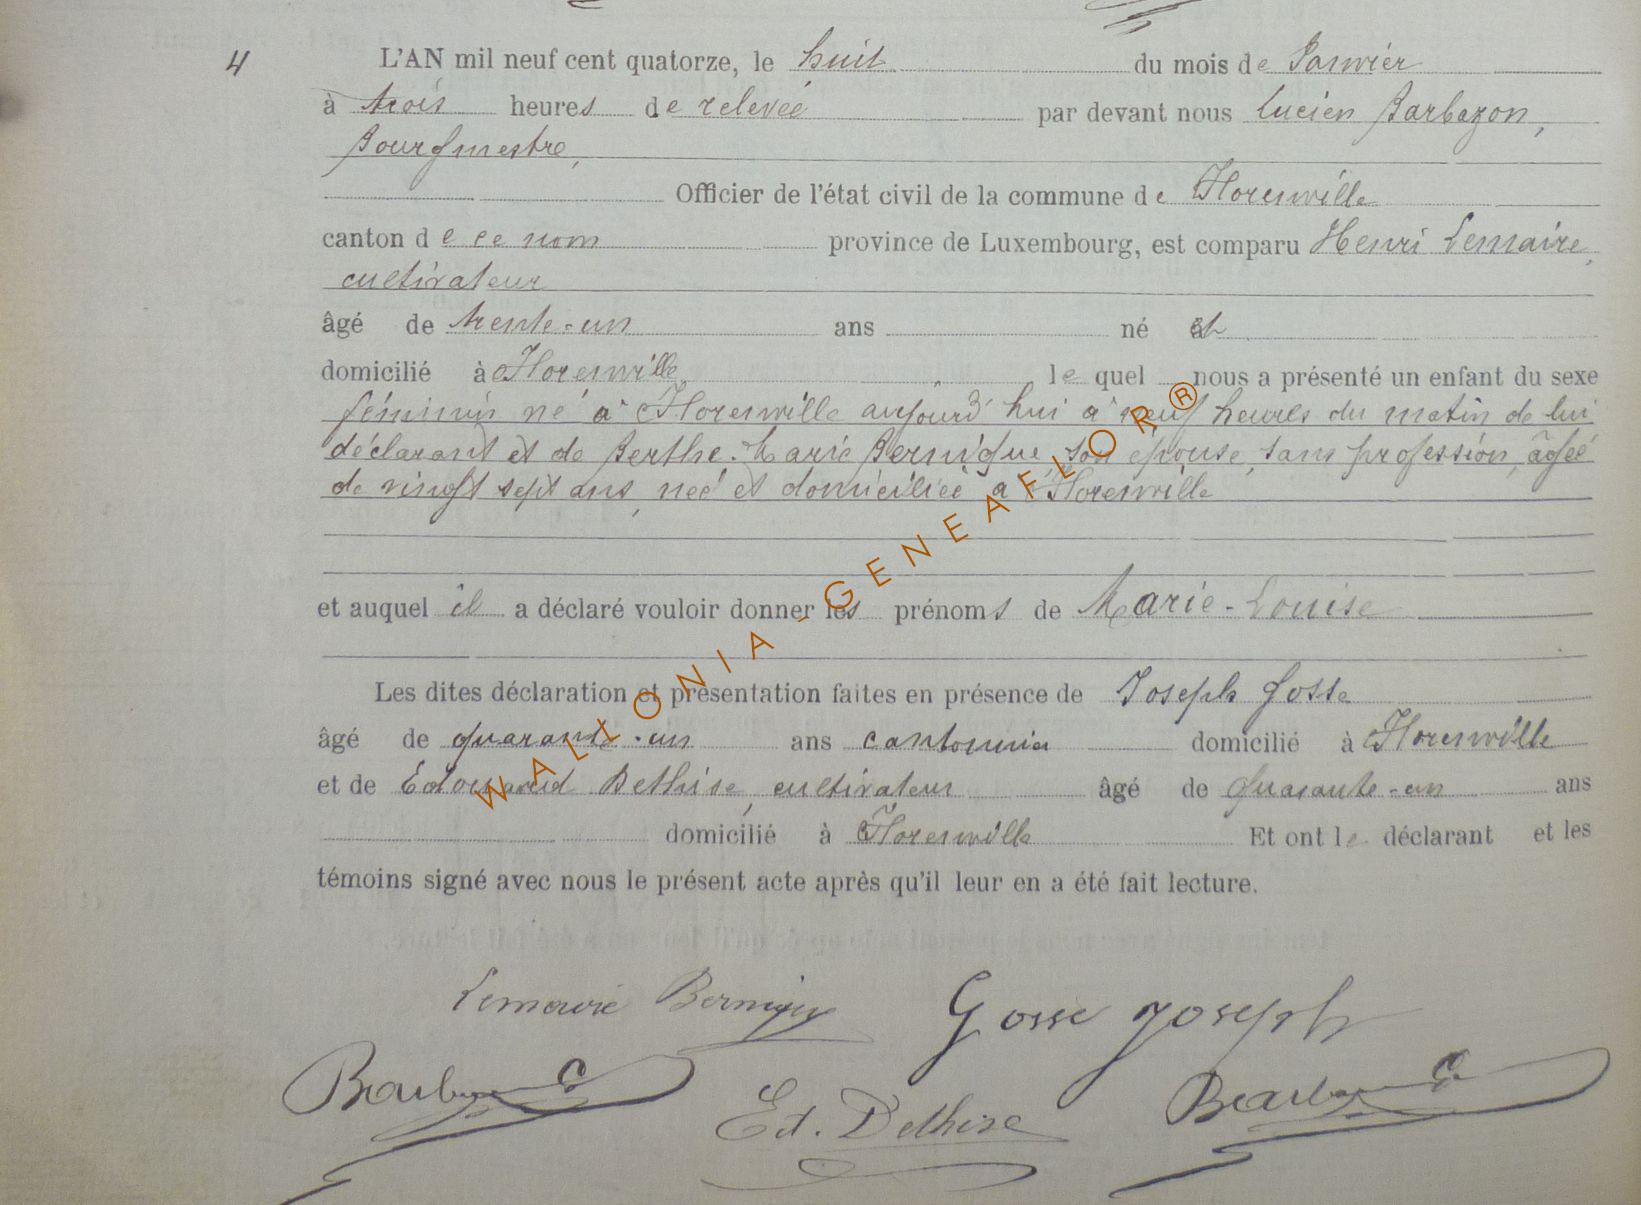 4
L'AN mil neuf cent quatorze, le huit du mois de Janvier
à trois heures de relevée par devant nous Lucien Barbazon,
Bourgmestre,
Officier de l'état civil de la commune de Florenville
canton de ce nom province de Luxembourg, est comparu Henri Lemaire,
cultivateur
âgé de trente-un ans né et
domicilié à Florenville lequel nous a présenté un enfant du sexe
féminin né à Florenville aujourd'hui à neuf heures du matin de lui
déclarant et de Berthe-Marie Bernique, son épouse, sans profession, âgée
de vingt sept ans, née et domiciliée à Florenville
et auquel il a déclaré vouloir donner les prénoms de Marie-Louise
Les dites déclaration et présentation faites en présence de Joseph Gosse
âgé de quarante-un ans cantonnier domicilié à Florenville
et de Edouard Dethise, cultivateur âgé de quarante-un ans
domicilié à Florenville Et ont le déclarant et les
témoins signé avec nous le présent acte après qu'il leur en a été fait lecture.
Gosse Joseph
Ed. Dethise
WALLONIA - GENEAFLOR®